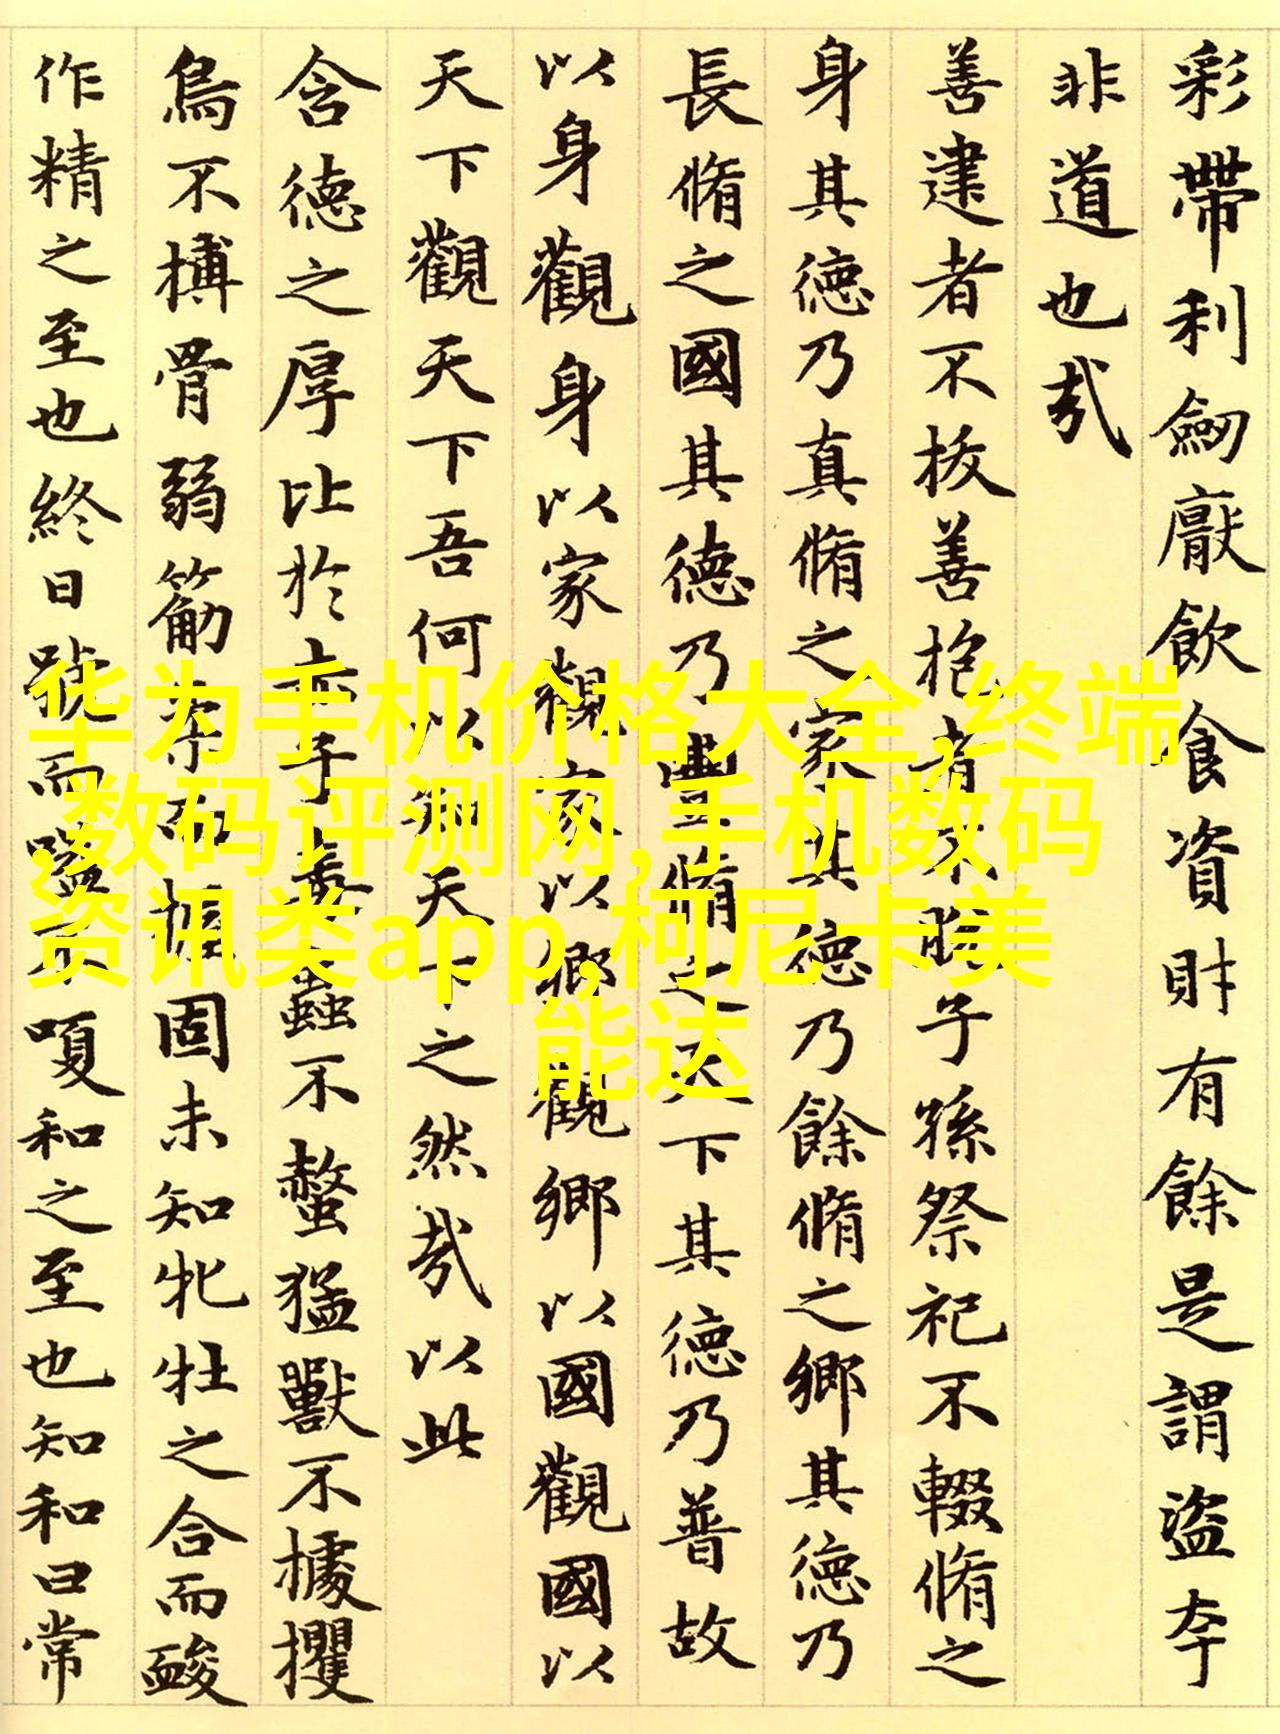 彩帶利劒厭飲食資財有餘是謂盜夸
非道也哉
善建者不拔善抱者不脫子孫祭祀不輟脩之
身其德乃真脩之家其德乃餘脩之鄉其德乃
長脩之國其德乃豐脩之天下其德乃普故
以身觀身以家觀家以鄉觀鄉以國觀國以
天下觀天下吾何以知天下之然哉以此
含德之厚比於赤子毒蟲不螫猛獸不據攫
鳥不搏骨弱筋柔而握固未知牝牡之合而酸
作精之至也終日號而嗌不嗄和之至也知和曰常
华为手机价格大全,终端
,数码评测网,手机数码
资讯类app,柯尼卡美
能达